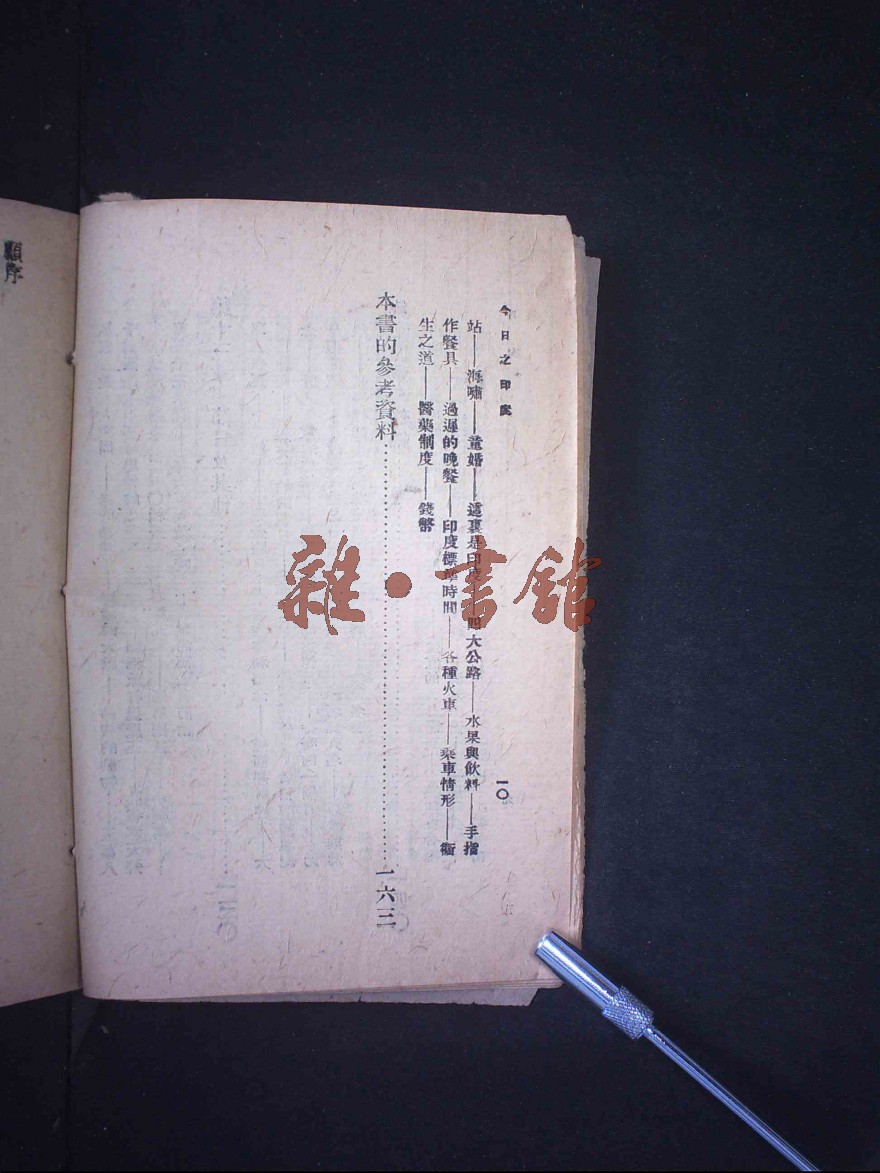 今日之印度
一〇
站——海嘯——童婚——這裏是印度——四大公路——水果與飲料——手指
作餐具——過遲的晚餐——印度標準時間——各種火車——乘車情形——衞
生之道——醫藥制度——錢幣
本書的參考資料…………一六三
顧序
雜·書館